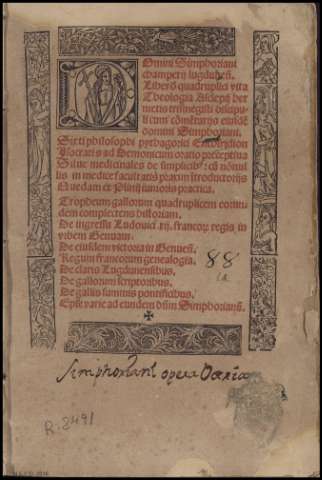 Domini Simphoriani
champerij lugdunēñ.
Liber ð quadruplici vita
Theologia Asclepij her
metis trismegisti discipu
li cum cōmētarijs eiusdē
domini Simphoriani.
Sixti philosophi pythagorici Enchiridion
Isocratis ad Demonicum oratio preceptiua
Silue medicinales de simplicibꝰ: cū nōnul
lis in medice facultatis praxim ītroductorijs
Quedam ex Plinij iunioris practica.
Tropheum gallorum quadruplicem eorun
dem complectens historiam.
De ingressu Ludouici xij. francoꝝ regis in
vrbem Genuam.
De eiusdem victoria in Genuēñ.
Regum francorum genealogia.
De claris Lugdunensibus.
De gallorum scriptoribus.
De gallis summis pontificibus.
Epłe varie ad eundem dñm Simphorianū.
88
Simphoriani opera Varia
R. 8491